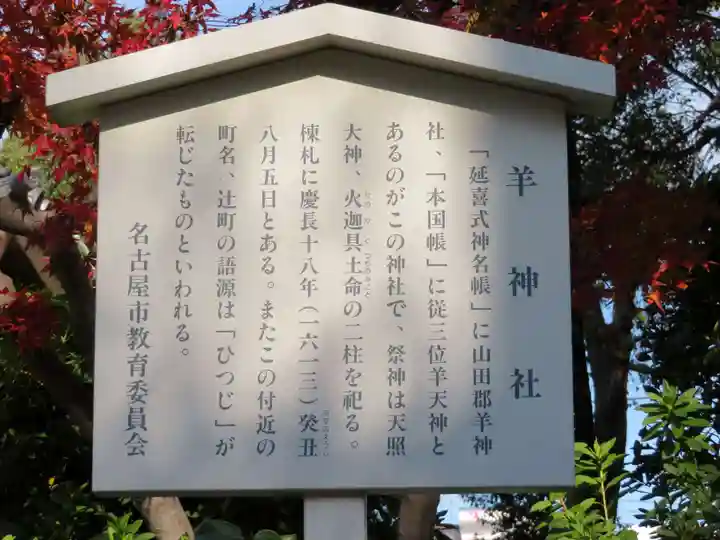 羊神社
「延喜式神名帳」に山田郡羊神
社、「本国帳」に従三位羊天神と
あるのがこの神社で、祭神は天照
大神、火迦具土命の二柱を祀る。
棟札に慶長十八年(一六一三)癸丑
八月五日とある。またこの付近の
町名、辻町の語源は「ひつじ」が
転じたものといわれる。
名古屋市教育委員会